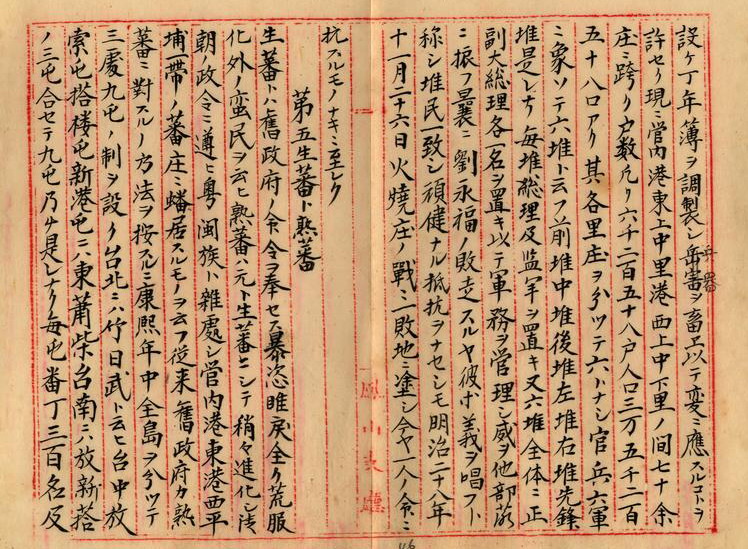 設ケ丁年簿ヲ調製シ兵器ヲ畜ヱ以テ変ニ應スルコトヲ
許セリ現ニ管内港東上中里港西上中下里ノ間七十余
庄ニ跨リ户数凡リ六千二百五十八户人口三万五千二百
五十八口アリ其各里庄ヲ分ツテ六トナシ官兵六軍
ニ象ソテ六堆ト云フ前堆中堆後堆左堆右堆先鋒
堆是レナリ毎堆総理及监軍ヲ置キ又六堆全体ニ正
副大総理各一名ヲ置キ以テ軍務ヲ管理シ威ヲ他部落
ニ振フ曩ニ劉永福ノ敗走スルヤ彼ホ義ヲ唱フト
称シ堆民一致シ頑健ナル抵抗ヲナセシモ明治二十八年
十一月二十六日火燒庄ノ戰ニ一敗地ニ塗シ今ヤ一人ノ令ニ
抗スルモノナキニ至レリ
第五生蕃ト熟蕃
生蕃トハ舊政府ノ命令ヲ奉セス暴恣睢戻全ク荒服
化外ノ蛮民ヲ云ヒ熟蕃ハ元ト生蕃ヒシテ稍々進化シ清
朝ノ政令ニ遵ヒ粤閩族ト雑處シ管内港東港西平
埔一帶ノ蕃庄ニ蟠居スルモノヲ云フ従来舊政府カ熟
蕃ニ對スルノ方法ヲ按スルニ康熙年中全島ヲ分ツテ
三處九屯ノ制ヲ設ケ台北ニハ竹日武ト云ヒ台中放
索屯搭楼屯新港屯ニハ東莆柴台南ニハ放新搭
ノ三屯合セテ九屯乃ケ是レナリ毎屯番丁三百名及
鳳山支廳
46